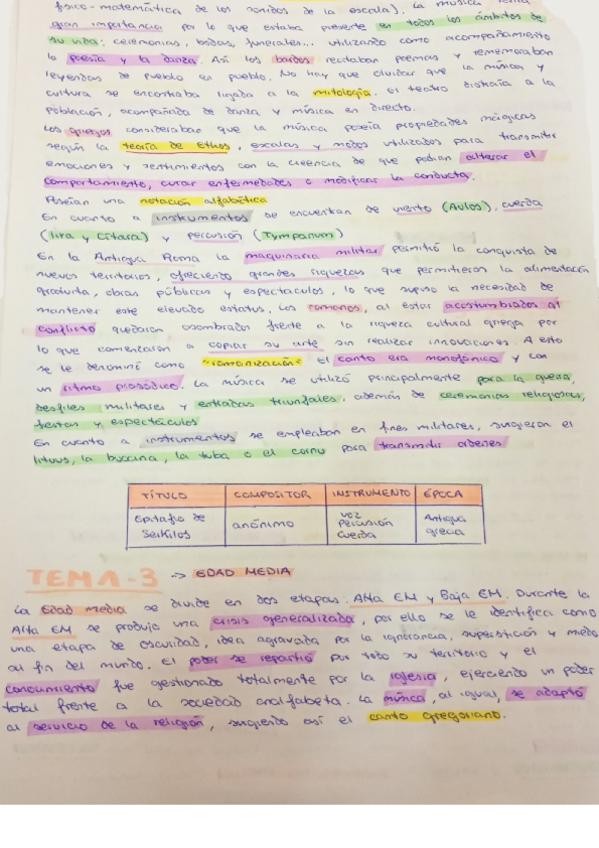 físico-matemática de los sonidos de la escala), la música tenía
gran importancia por lo que estaba presente en todos los ámbitos de
su vida: ceremonias, bodas, funerales... utilizando como acompañamiento
la poesía y la danza. Así los bardos recitaban poemas y rememoraban
leyendas de pueblo en pueblo. No hay que olvidar que la música y
cultura se encontraba ligada a la mitología. el teatro distraía a la
población, acompañada de danza y música en directo.
Los griegos consideraban que la música poseía propiedades mágicas
según la teoría de Ethos, escalas y modos utilizados para transmitir
emociones y sentimientos con la creencia de que podían alterar el
comportamiento, curar enfermedades o modificar la conducta.
Poseían una notación alfabética
En cuanto a instrumentos se encuentran de viento (Aulos), cuerda
(lira y cítara) y percusión (Tympanon)
En la Antigua Roma la maquinaria militar permitió la conquista de
nuevos territorios, ofreciendo grandes riquezas que permitieron la alimentación
gratuita, obras públicas y espectáculos, lo que supuso la necesidad de
mantener este elevado estatus. Los romanos, al estar acostumbrados al
conflicto quedaron asombrados frente a la riqueza cultural griega por
lo que comenzaron a copiar su arte sin realizar innovaciones. A esto
se le denominó como "romanización" El canto era monofónico y con
un ritmo prosódico. La música se utilizó principalmente para la guerra,
desfiles militares y entradas triunfales, además de ceremonias religiosas,
fiestas y espectáculos
En cuanto a instrumentos se empleaban en fines militares, surgieron el
lituus, la buccina, la tuba o el cornu para transmitir ordenes
TÍTULO COMPOSITOR INSTRUMENTO ÉPOCA
Epitafio de Seikilos anónimo voz percusión cuerda Antigua grecia
TEMA-3 -> EDAD MEDIA
La Edad media se divide en dos etapas: Alta EM y Baja EM. Durante la
Alta EM se produjo una crisis generalizada, por ello se le identifica como
una etapa de oscuridad, idea agravada por la ignorancia, superstición y miedo
al fin del mundo. El poder se repartió por todo su territorio y el
conocimiento fue gestionado totalmente por la iglesia, ejerciendo un poder
total frente a la sociedad analfabeta. La música, al igual, se adaptó
al servicio de la religión, surgiendo así el canto gregoriano.